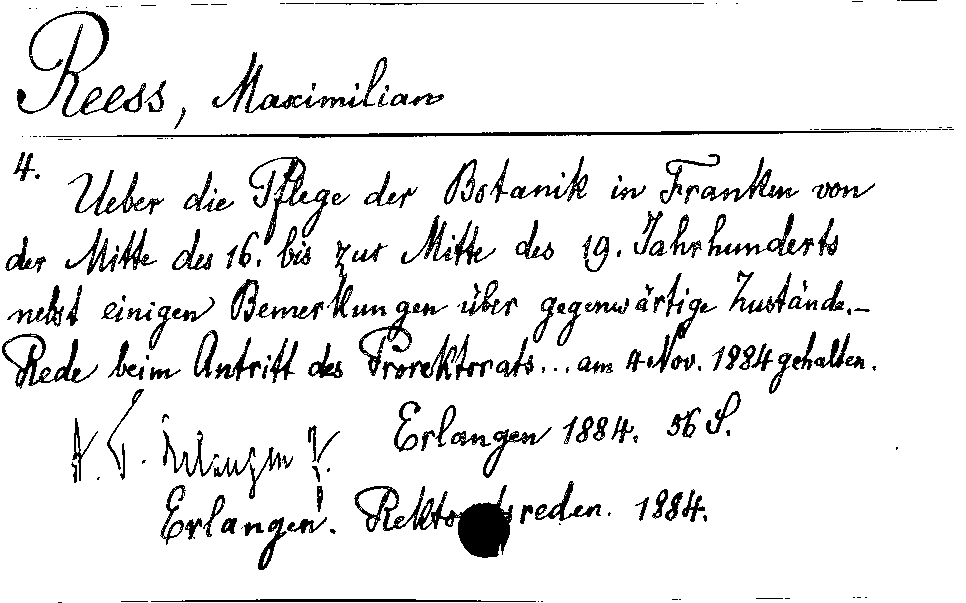 Reess, Maximilian
4.
Ueber die Pflege der Botanik in Franken von
der Mitte des 16. bis zur Mitte des 19. Jahrhunderts
nebst einigen Bemerkungen über gegenwärtige Zustände.—
Rede beim Antritt des Prorektorats... am 4 Nov. 1884 gehalten.
Erlangen 1884. 56 S.
Erlangen. Rektoratsreden. 1884.